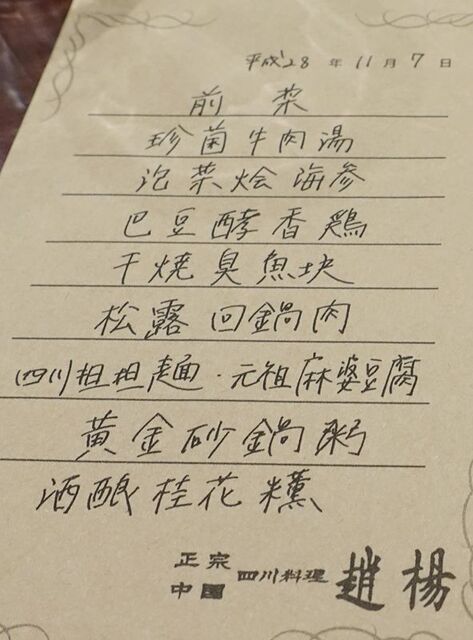 平成28年11月7日
前菜
珍菌牛肉湯
泡菜烩海参
巴豆酵香鶏
干焼臭魚块
松露回鍋肉
四川担担麺・元祖麻婆豆腐
黄金砂鍋粥
酒酿桂花
正宗中國四川料理 趙楊